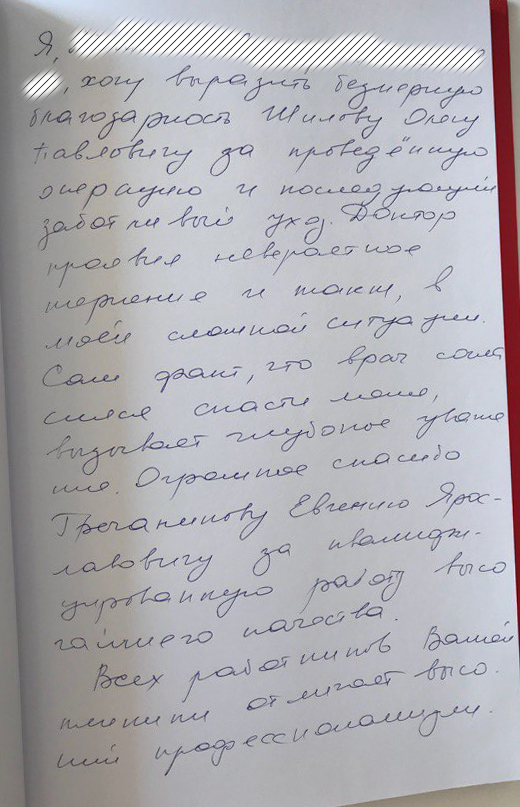 Я,
, хочу выразить безмерную
благодарность Шилову Олегу
Павловичу за проведённую
операцию и последующий
заботливый уход. Доктор
проявил невероятное
терпение и такт, в
моей сложной ситуации.
Сам факт, что врач согла
сился спасти меня,
вызывает глубокое уваже
ние. Огромное спасибо
Гречаникову Евгению Ярос-
лавовичу за квалифи-
цированную работу высо
чайшего качества.
Всех работников Вашей
клиники отличает высо
кий профессионализм.